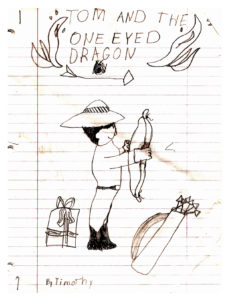 TOM AND THE
ONE EYED
DRAGON
By Timothy